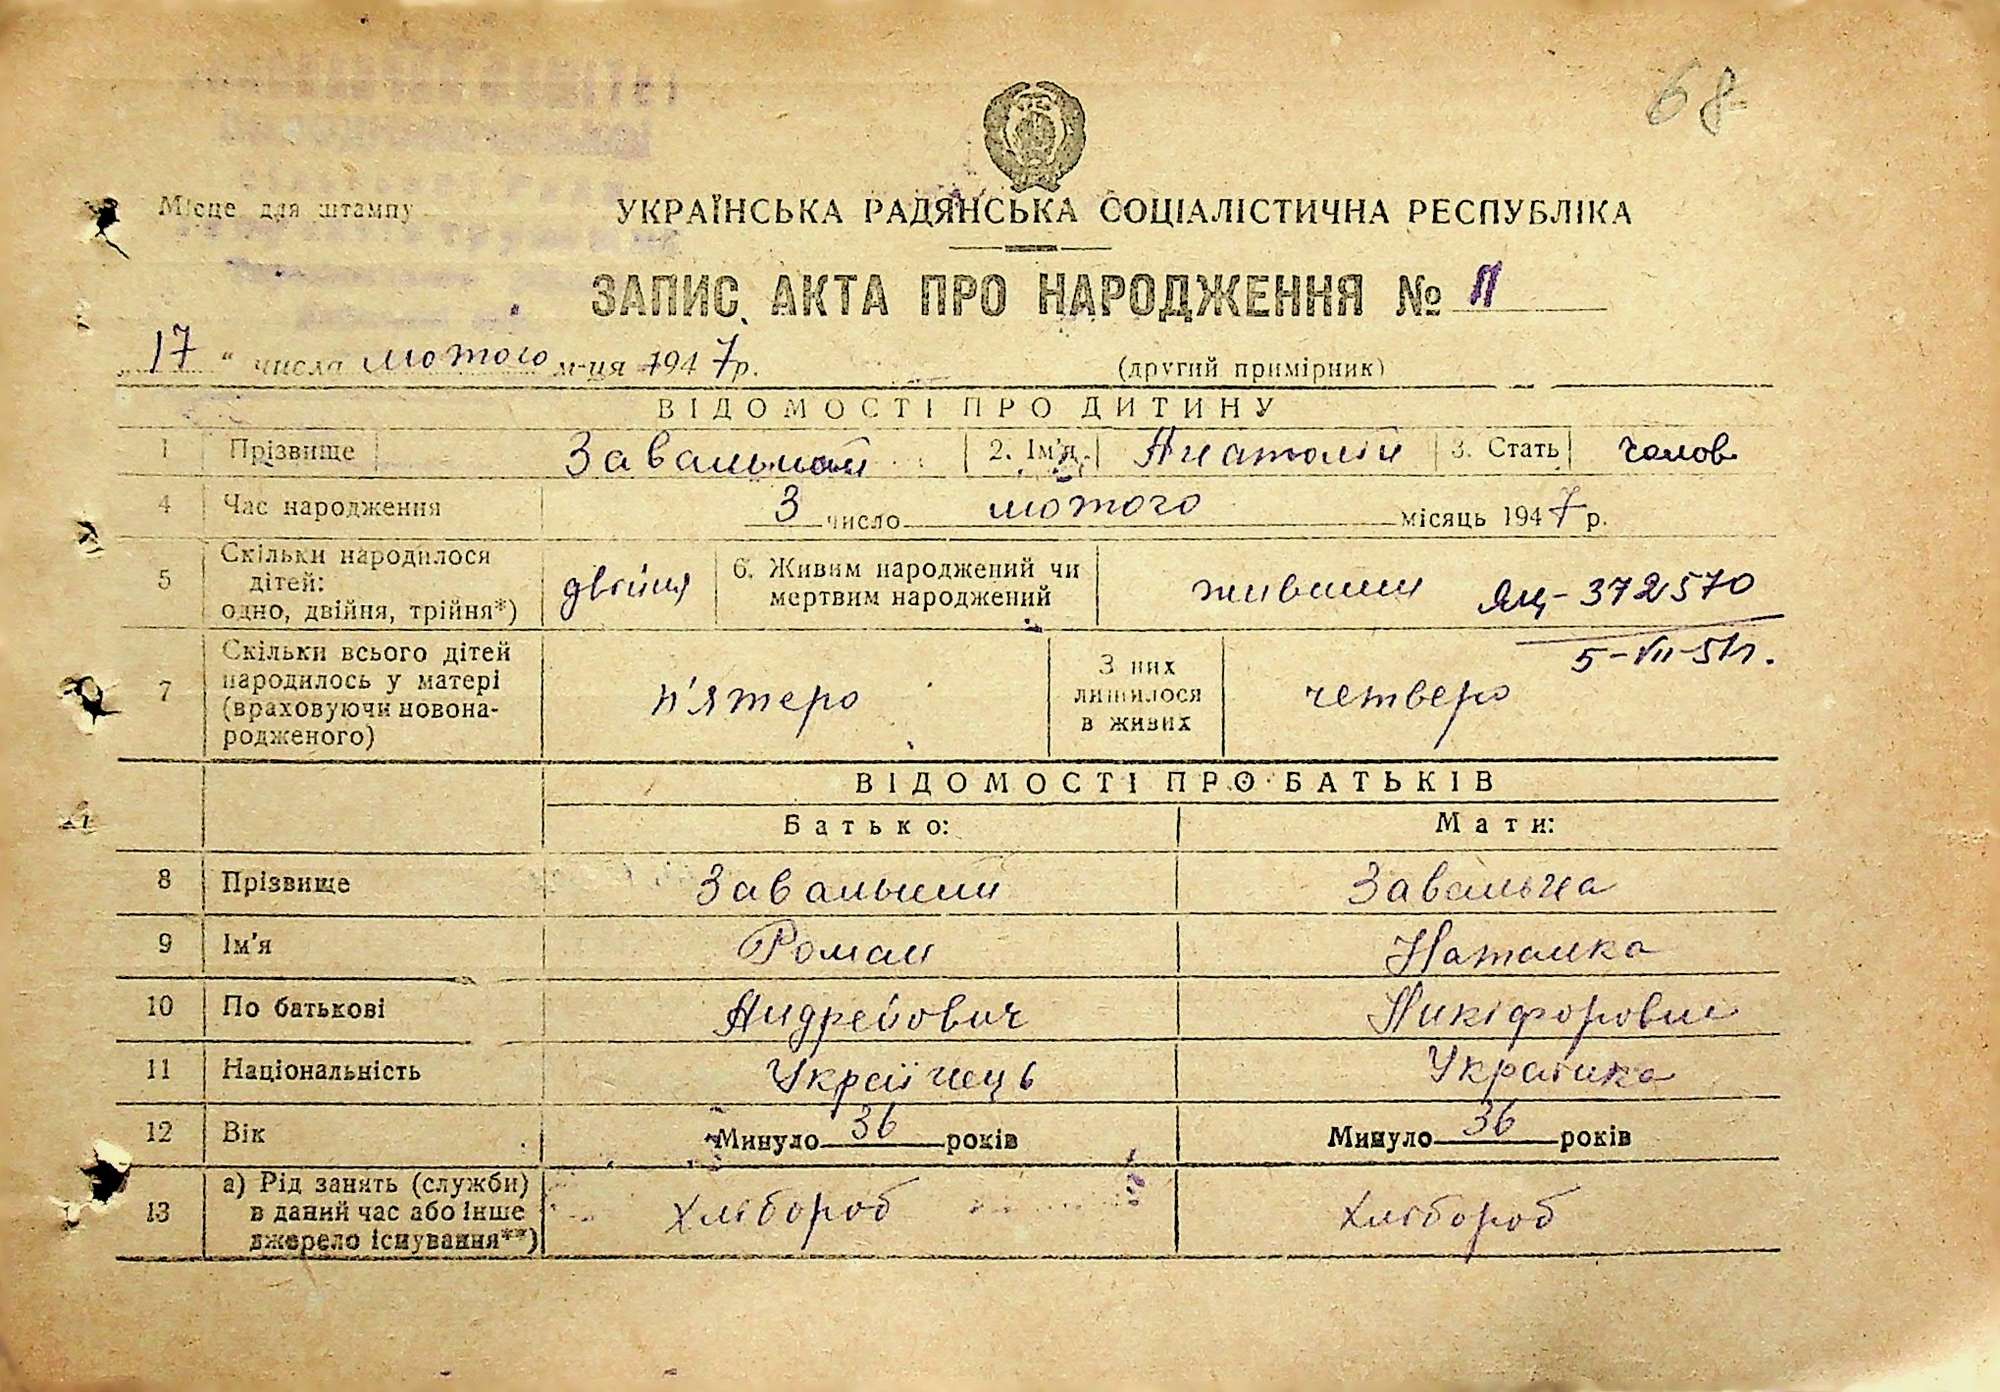 68
Місце для штампу
УКРАЇНСЬКА РАДЯНСЬКА СОЦІАЛІСТИЧНА РЕСПУБЛІКА
ЗАПИС АКТА ПРО НАРОДЖЕННЯ № 11
„17“ числа лютого м-ця 1947 р. (другий примірник)
ВІДОМОСТІ ПРО ДИТИНУ
1 Прізвище Завальний 2. Ім'я Анатолій 3. Стать чолов
4 Час народження 3 число лютого місяць 1947 р.
5 Скільки народилося дітей: одно, двійня, трійня*) двійня 6. Живим народжений чи мертвим народжений живими ЯЦ-372570
5-VII-51р.
7 Скільки всього дітей народилось у матері (враховуючи новона-родженого) п'ятеро З них лишилося в живих четверо
ВІДОМОСТІ ПРО БАТЬКІВ
Батько: Мати:
8 Прізвище Завальний Завальна
9 Ім'я Роман Наталка
10 По батькові Андрейович Никіфоровна
11 Національність Українець Українка
12 Вік Минуло 36 років Минуло 36 років
13 а) Рід занять (служби) в даний час або інше джерело існування**) Хлібороб Хлібороб